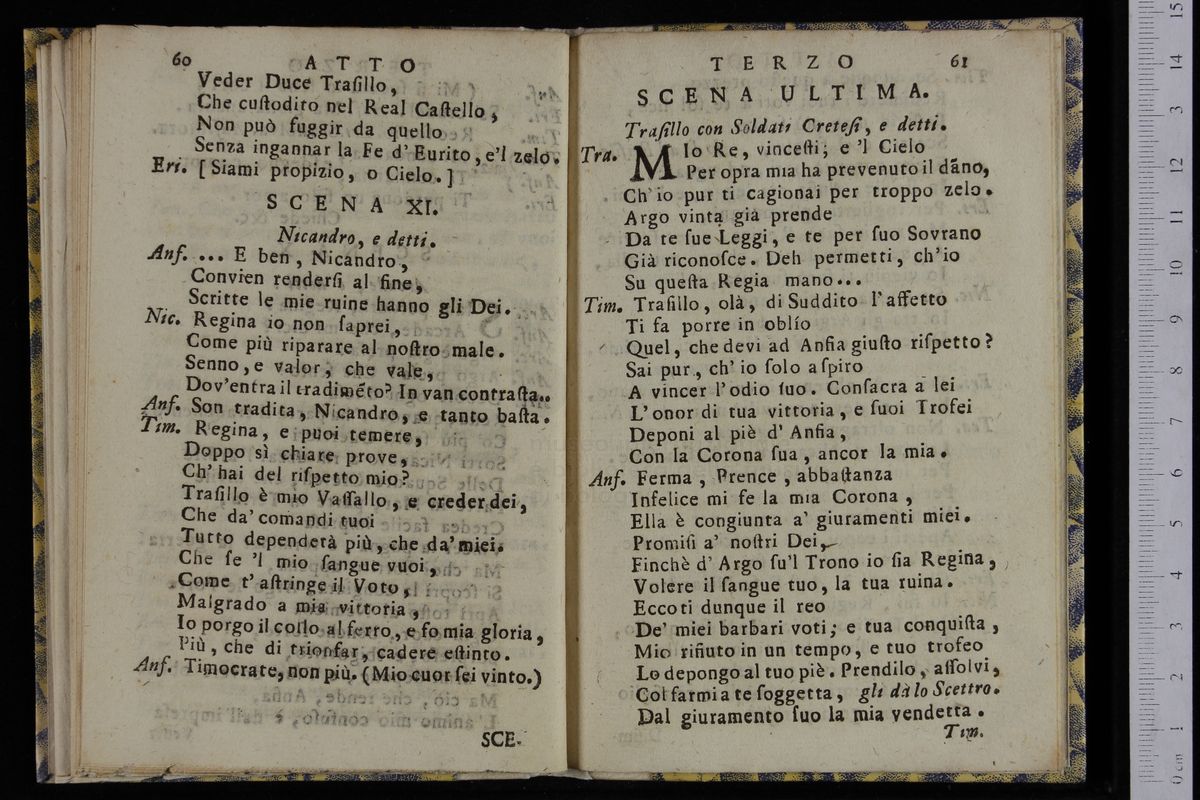 60 ATTO
Veder Duce Traſillo,
Che cuſtodito nel Real Caſtello,
Non può fuggir da quello
Senza ingannar la Fe d' Eurito, e'l zelo.
Eri. [Siami propizio, o Cielo.]
SCENA XI.
Nicandro, e detti.
Anf. ... E ben, Nicandro,
Convien renderſi al fine,
Scritte le mie ruine hanno gli Dei.
Nic. Regina io non ſaprei,
Come più riparare al noſtro male.
Senno, e valor, che vale,
Dov'entra il tradimẽto? In van contraſta..
Anf. Son tradita, Nicandro, e tanto baſta.
Tim. Regina, e puoi temere,
Doppo sì chiare prove,
Ch' hai del riſpetto mio?
Traſillo è mio Vaſſallo, e creder dei,
Che da' comandi tuoi
Tutto dependerà più, che da' miei.
Che ſe 'l mio ſangue vuoi,
Come t' aſtringe il Voto,
Malgrado a mia vittoria,
Io porgo il collo al ferro, e fo mia gloria,
Più, che di trionfar, cadere eſtinto.
Anf. Timocrate, non più. (Mio cuor ſei vinto.)
SCE-
TERZO 61
SCENA ULTIMA.
Traſillo con Soldati Creteſi, e detti.
Tra. MIo Re, vinceſti; e 'l Cielo
Per opra mia ha prevenuto il dãno,
Ch' io pur ti cagionai per troppo zelo.
Argo vinta già prende
Da te ſue Leggi, e te per ſuo Sovrano
Già riconoſce. Deh permetti, ch'io
Su queſta Regia mano...
Tim. Traſillo, olà, di Suddito l' affetto
Ti fa porre in oblío
Quel, che devi ad Anſia giuſto riſpetto?
Sai pur, ch' io ſolo aſpiro
A vincer l' odio ſuo. Conſacra a lei
L' onor di tua vittoria, e ſuoi Trofei
Deponi al piè d' Anſia,
Con la Corona ſua, ancor la mia.
Anſ. Ferma, Prence, abbaſtanza
Infelice mi fe la mia Corona,
Ella è congiunta a' giuramenti miei.
Promiſi a' noſtri Dei,
Finchè d' Argo ſu'l Trono io ſia Regina,
Volere il ſangue tuo, la tua ruina.
Eccoti dunque il reo
De' miei barbari voti; e tua conquiſta,
Mio rifiuto in un tempo, e tuo trofeo
Lo depongo al tuo piè. Prendilo, aſſolvi,
Col farmi a te ſoggetta, gli dà lo Scettro.
Dal giuramento ſuo la mia vendetta.
Tim.